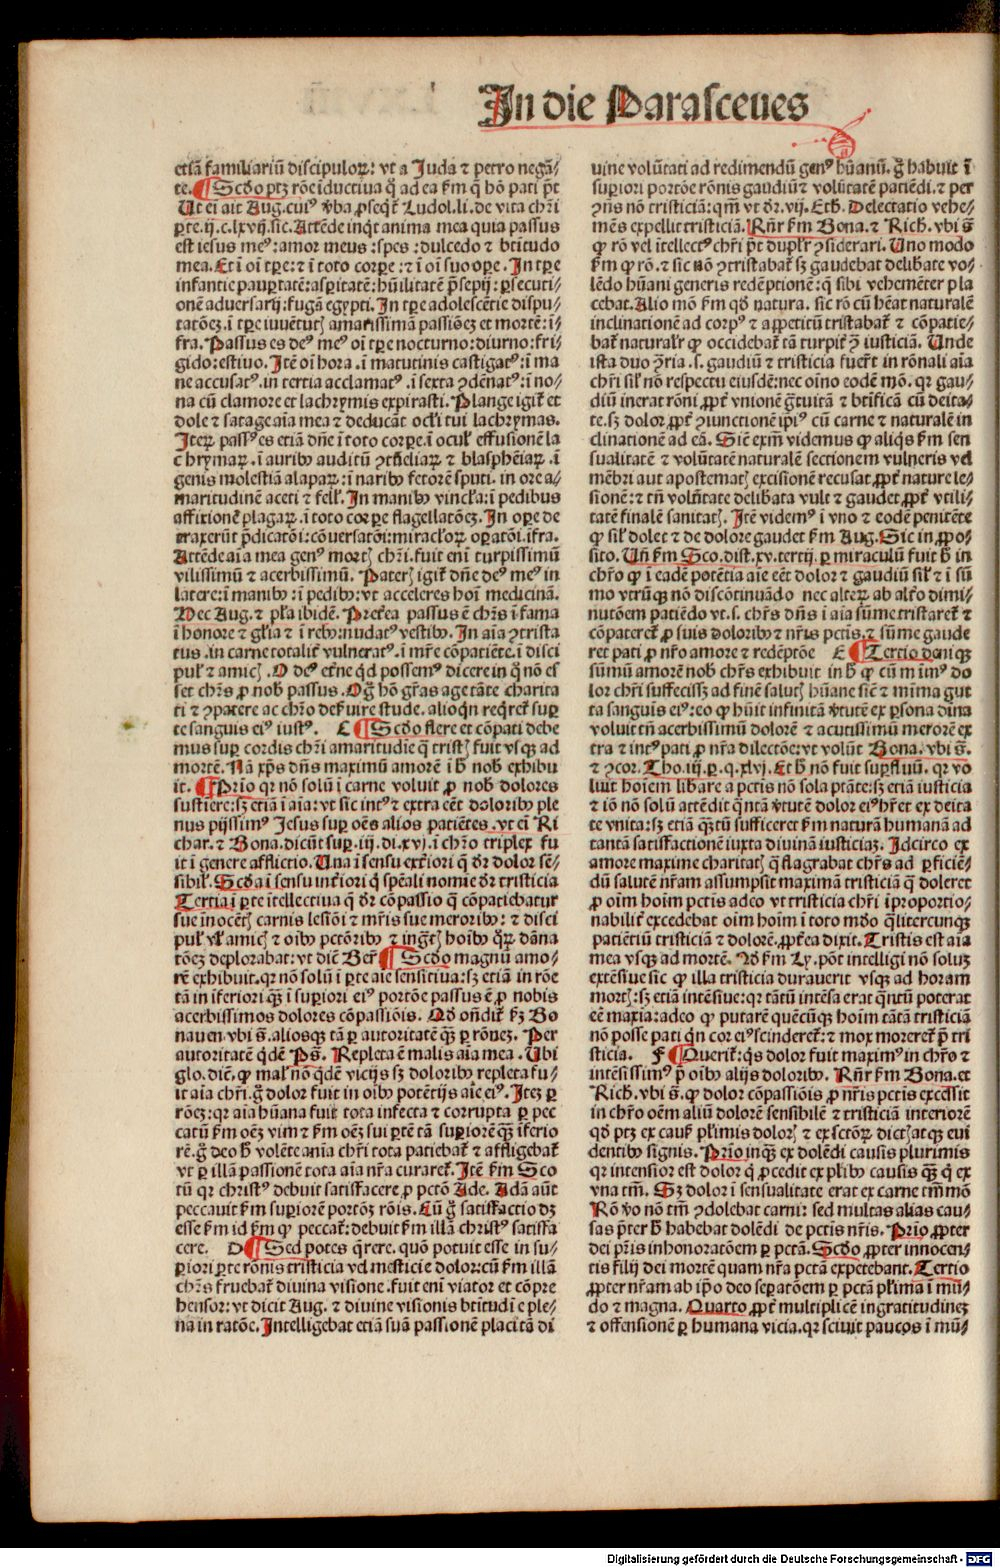 In die Parasceues
etiā familiariū discipuloꝝ: vt a Juda ⁊ petro negā⸗
te. ¶ Scḋo ptꝫ rōe iductiua q̇ ad ea ẜm q̄ hō pati pt̄
Ut ei ait Aug. cuiꝰ v̓ba ꝓseqt̓ Ludol. li. de vita chr̄i
ꝑte. ij. c. lxvij. sic. Attēde inq̇t anima mea quia passus
est iesus meꝰ: amor meus: spes: dulcedo ⁊ btītudo
mea. Et ī oī tꝑe: ⁊ ī toto corꝑe: ⁊ ī oī suo oꝑe. In tꝑe
infantie pauꝑtatē: asꝑitatē: hūilitatē p̄sepij: ꝑsecuti⸗
onē aduersarij: fugā egypti. In tꝑe adolescētie dispu⸗
tatōeꝫ. ī tꝑe iuuētutꝭ amarissimā passiōeꝫ et mortē: ī⸗
fra. Passus es deꝰ meꝰ oī tꝑe nocturno: diurno: fri⸗
gido: estiuo. Itē oī hora. ī matutinis castigatꝰ: ī ma
ne accusatꝰ. in tertia acclamatꝰ. ī sexta ꝯdēnatꝰ: ī no⸗
na cū clamore et lachrymis expirasti. Plange igit̓ et
dole ⁊ satage aīa mea ⁊ deducāt ocl̓i tui lachrymas.
Iteꝝ passꝰ es etiā dn̄e ī toto corꝑe. ī ocul̓ effusionē la
chrymaꝝ. ī auribꝰ auditū ꝯtūeliaꝝ ⁊ blasphēiaꝝ. ī
genis molestiā alapaꝝ: ī naribꝰ fetorē sputi. in ore a⸗
maritudinē aceti ⁊ fell̓. In manibꝰ vincl̓a: ī pedibus
affixionē plagaꝝ. ī toto corꝑe flagellatōeꝫ. In oꝑe de
traxerūt p̄dicatōi: cōuersatōi: miracl̓oꝝ oꝑatōi. īfra.
Attēde aīa mea genꝰ mortꝭ chr̄i. fuit enī turpissimū
vilissimū ⁊ acerbissimū. Paterꝭ igit̓ dn̄e deꝰ meꝰ in
latere: ī manibꝰ: ī pedibꝰ: vt acceleres hoī medicinā.
Hec Aug. ⁊ pl̓a ibidē. Pret̓ea passus ē chr̄s ī fama
ī honore ⁊ gl̓ia ⁊ ī rebꝰ: nudatꝰ vestibꝰ. In aīa ꝯtrista
tus. in carne totalit̓ vulneratꝰ. ī mr̄e cōpatiēte. ī disci
pul̓ ⁊ amicꝭ. O deꝰ et̓ne qd̓ possemꝰ dicere in q̇ nō es
set chr̄s ꝓ nob̓ passus. Og̓ hō gr̄as age tāte charita
ti ⁊ ꝯpatere ac chr̄o def̓uire stude. alioqn̄ reqr̓et̓ suꝑ
te sanguis eiꝰ iustꝰ. C ¶ Scḋo flere et cōpati debe
mus suꝑ cordis chr̄i amaritudīe q̄ tristꝭ fuit vsqꝫ ad
mortē. Nā xp̄s dn̄s maximū amorē ī h̓ nob̓ exhibu
it. ¶ Prīo qꝛ nō solū ī carne voluit ꝓ nob̓ dolores
sustīere: sꝫ etiā ī aīa: vt sic intꝰ ⁊ extra eēt doloribꝰ ple
nus pijssimꝰ Jesus suꝑ oēs alios patiētes. vt eī Ri
char. ⁊ Bona. dicūt suꝑ. iij. di. xv. ī chr̄o triplex fu
it ī genere afflictio. Una ī sensu ext̓iori q̄ dr̄ dolor sē⸗
sibil̓. Scḋa ī sensu int̓iori q̄ spēali nomīe dr̄ tristicia
Tertia ī ꝑte ītellectiua q̄ dr̄ cōpassio q̄ cōpatiebatur
sue īnocētꝭ carnis lesiōi ⁊ mr̄is sue merorībꝰ: ⁊ disci
pul̓ vl̓ amicꝭ ⁊ oībꝰ pctōribꝰ ⁊ ingr̄tꝭ hoībꝰ qꝝ dāna
tōeꝫ deplorabat: vt diē Ber̓ ¶ Scḋo magnū amo⸗
rē exhibuit. qꝛ nō solū ī ꝑte aīe sensitiua: sꝫ etiā in rōe
tā in if̓eriori qꝫ̄ ī suꝑiori eiꝰ portōe passus ē ꝓ nobis
acerbissimos dolores cōpassiōis. Qḋ ondit̓ ẜꝫ Bo
nauen. vbi s̄. aliosqꝫ tā ꝑ autoritatē qꝫ̄ ꝑ rōneꝫ. Per
autoritatē qd̓ē Ps̄. Repleta ē malis aīa mea. Ubi
glo. diē. ꝙ mal̓ nō qd̓ē vicijs sꝫ doloribꝰ repleta fu⸗
it aīa chr̄i. g̓ dolor fuit in oībꝰ potētijs aīe eiꝰ. Iteꝫ ꝑ
rōeꝫ: qꝛ aīa hūana fuit tota infecta ⁊ corrupta ꝑ pec
catū ẜm oēꝫ vim ⁊ ẜm oēꝫ sui ꝑtē tā suꝑiorē qꝫ̄ īf̓erio
rē. g̓ deo h̓ volēte aīa chr̄i tota patiebat̓ ⁊ affligebat̓
vt ꝑ illā passionē tota aīa nr̄a curaret̓. Itē ẜm Sco
tū qꝛ christꝰ debuit satisfacere ꝓ pctō Ade. Adā aūt
peccauit ẜm suꝑiorē portōeꝫ rōis. Cū g̓ satisfactio dꝫ
esse ẜm id ẜm qḋ peccat̓: debuit ẜm illā christꝰ satisfa
cere. D ¶ Sed potes q̄rere. quō potuit esse in su⸗
ꝑiori ꝑte rōnis tristicia vel mesticie dolor: cū ẜm illā
chr̄s fruebat̓ diuina visione. fuit enī viator et cōpre
hensor: vt dicit Aug. ⁊ diuine visionis btītudīe ple⸗
na in ratōe. Intelligebat etiā suā passionē placitā di
uine volūtati ad redimendū genꝰ hūanū. g̓ habuit ī
suꝑiori portōe rōnis gaudiū ⁊ volūtatē patiēdi. ⁊ per
ꝯn̄s nō tristiciā: qm̄ vt dr̄. vij. Eth. Delectatio vehe⸗
mēs expellit tristiciā. Rn̄r ẜm Bona. ⁊ Rich. vbi s̄
ꝙ rō vel ītellectꝰ chr̄i pt̄ dupl̓r ꝯsiderari. Uno modo
ẜm ꝙ rō. ⁊ sic nō ꝯtristabat̓ sꝫ gaudebat delib̓ate vo⸗
lēdo hūani generis redēptionē: q̄ sibi vehemēter pla
cebat. Alio mō ẜm qḋ natura. sic rō cū hēat naturalē
inclinationē ad corpꝰ ⁊ appetitū tristabat̓ ⁊ cōpatie⸗
bat̓ naturalr̓ ꝙ occidebat̓ tā turpit̓ ꝯ̄ iusticiā. Unde
ista duo ꝯ̄ria. s. gaudiū ⁊ tristicia fuer̓t in rōnali aīa
chr̄i sil̓ nō respectu eiusdē: nec oīno eodē mō. qꝛ gau⸗
diū inerat rōni ꝓpt̓ vnionē gr̄tuitā ⁊ btīficā cū deita⸗
te. sꝫ dolor ꝓpt̓ ꝯiunctionē ip̄iꝰ cū carne ⁊ naturalē in
clinationē ad eā. Siē exm̄ videmus ꝙ aliq̄s ẜm sen
sualitatē ⁊ volūtatē naturalē sectionem vulneris vel
mēbri aut apostematꝭ excisionē recusat ꝓpt̓ nature le⸗
sionē: ⁊ tn̄ volūtate delib̓ata vult ⁊ gaudet ꝓpt̓ vtili⸗
tatē finalē sanitatꝭ. Itē videmꝰ ī vno ⁊ eodē penitēte
ꝙ sil̓ dolet ⁊ de dolore gaudet ẜm Aug. Sic in ꝓpo⸗
sito. Un̄ ẜm Sco. dist. xv. tertij. ꝑ miraculū fuit h̓ in
chr̄o ꝙ ī eadē potētia aīe eēt dolor ⁊ gaudiū sil̓ ⁊ ī sū
mo vtrūqꝫ nō discōtinuādo nec alteꝝ ab alt̓o dimi⸗
nutōem patiēdo vt. s. chr̄s dn̄s ī aīa sūme tristaret̓ ⁊
cōpateret̓ ꝓ suis doloribꝰ ⁊ nr̄is pctīs. ⁊ sūme gaude
ret pati ꝓ nr̄o amore ⁊ redēptōe E ¶ Tertio deniqꝫ
sūmū amorē nob̓ chr̄s exhibuit in h̓ ꝙ cū mīimꝰ do
lor chr̄i suffecissꝫ ad finē salutꝭ hūane siē ⁊ mīma gut
ta sanguis eiꝰ: eo ꝙ hūit infinitā v̓tutē ex ꝑsona diīna
voluit tn̄ acerbissimū dolorē ⁊ acutissimū merorē ex
tra ⁊ intꝰ pati ꝓ nr̄a dilectōe: vt volūt Bona. vbi s̄.
⁊ ꝯcor. Tho. iij. ꝑ. q. xlvj. Et h̓ nō fuit suꝑfluū. qꝛ vo
luit hoīem libare a pctīs nō sola ptāte: sꝫ etiā iusticia
⁊ iō nō solū attēdit q̄ntā v̓tutē dolor eiꝰ hr̄et ex deita
te vnita: sꝫ etiā qꝫ̄tū sufficeret ẜm naturā humanā ad
tantā satisfactionē iuxta diuinā iusticiaꝫ. Idcirco ex
amore maxime charitatꝭ q̄ flagrabat chr̄s ad ꝑficiē⸗
dū salutē nr̄am assumpsit maximā tristiciā q̄ doleret
ꝓ oīm hoīm pctīs adeo vt tristicia chr̄i īproportio⸗
nabilit̓ excedebat oīm hoīm ī toto mūdo q̄litercunqꝫ
patiētiū tristiciā ⁊ dolorē. ꝓpt̓ea dixit. Tristis est aīa
mea vsqꝫ ad mortē. Qḋ ẜm Ly. pōt intelligi nō soluꝫ
extēsiue sic ꝙ illa tristicia durauerit vsqꝫ ad horam
mortꝭ: sꝫ etiā intēsiue: qꝛ tātū intēsa erat q̄ntū poterat
eē maxīa: adeo ꝙ putarē quēcūqꝫ hoīm tātā tristiciā
nō posse pati qn̄ cor eiꝰ scinderet̓: ⁊ mox moreret̓ p̄ tri
sticia. F ¶ Querit̓: q̄s dolor fuit maximꝰ in chr̄o ⁊
intēsissimꝰ p̄ oībꝰ alijs doloribꝰ. Rn̄r ẜm Bona. et
Rich. vbi s̄. ꝙ dolor cōpassiōis ꝓ nr̄is pctīs excessit
in chr̄o oēm aliū dolorē sensibilē ⁊ tristiciā interiorē
qḋ ptꝫ ex caus̓ pl̓imis dolorꝭ ⁊ ex sctōꝝ dictꝭ atqꝫ eui
dentibꝰ signis. Prīo inqꝫ ex dolēdi causis plurimis
qꝛ intensior est dolor q̄ ꝓcedit ex pl̓ibꝰ causis qꝫ̄ q̄ ex
vna tm̄. Sꝫ dolor ī sensualitate erat ex carne tm̄ mō
Rō v̓o nō tm̄ ꝯdolebat carni: sed multas alias cau⸗
sas p̄ter h̓ habebat dolēdi de pctīs nr̄is. Prīo ꝓpter
dei pr̄is inhonoratōem ꝑ pctā. Scḋo ꝓpter innocen⸗
tis filij dei mortē quam nr̄a pctā expetebant. Tertio
ꝓpter nr̄am ab ip̄o deo seꝑatōem ꝑ pctā pl̓ima ī mū⸗
do ⁊ magna. Quarto ꝓpt̓ multiplicē ingratitudineꝫ
⁊ offensionē ꝑ humana vicia. qꝛ sciuit paucos ī mū⸗
Digitalisierung gefördert durch die Deutsche Forschungsgemeinschaft - DFG